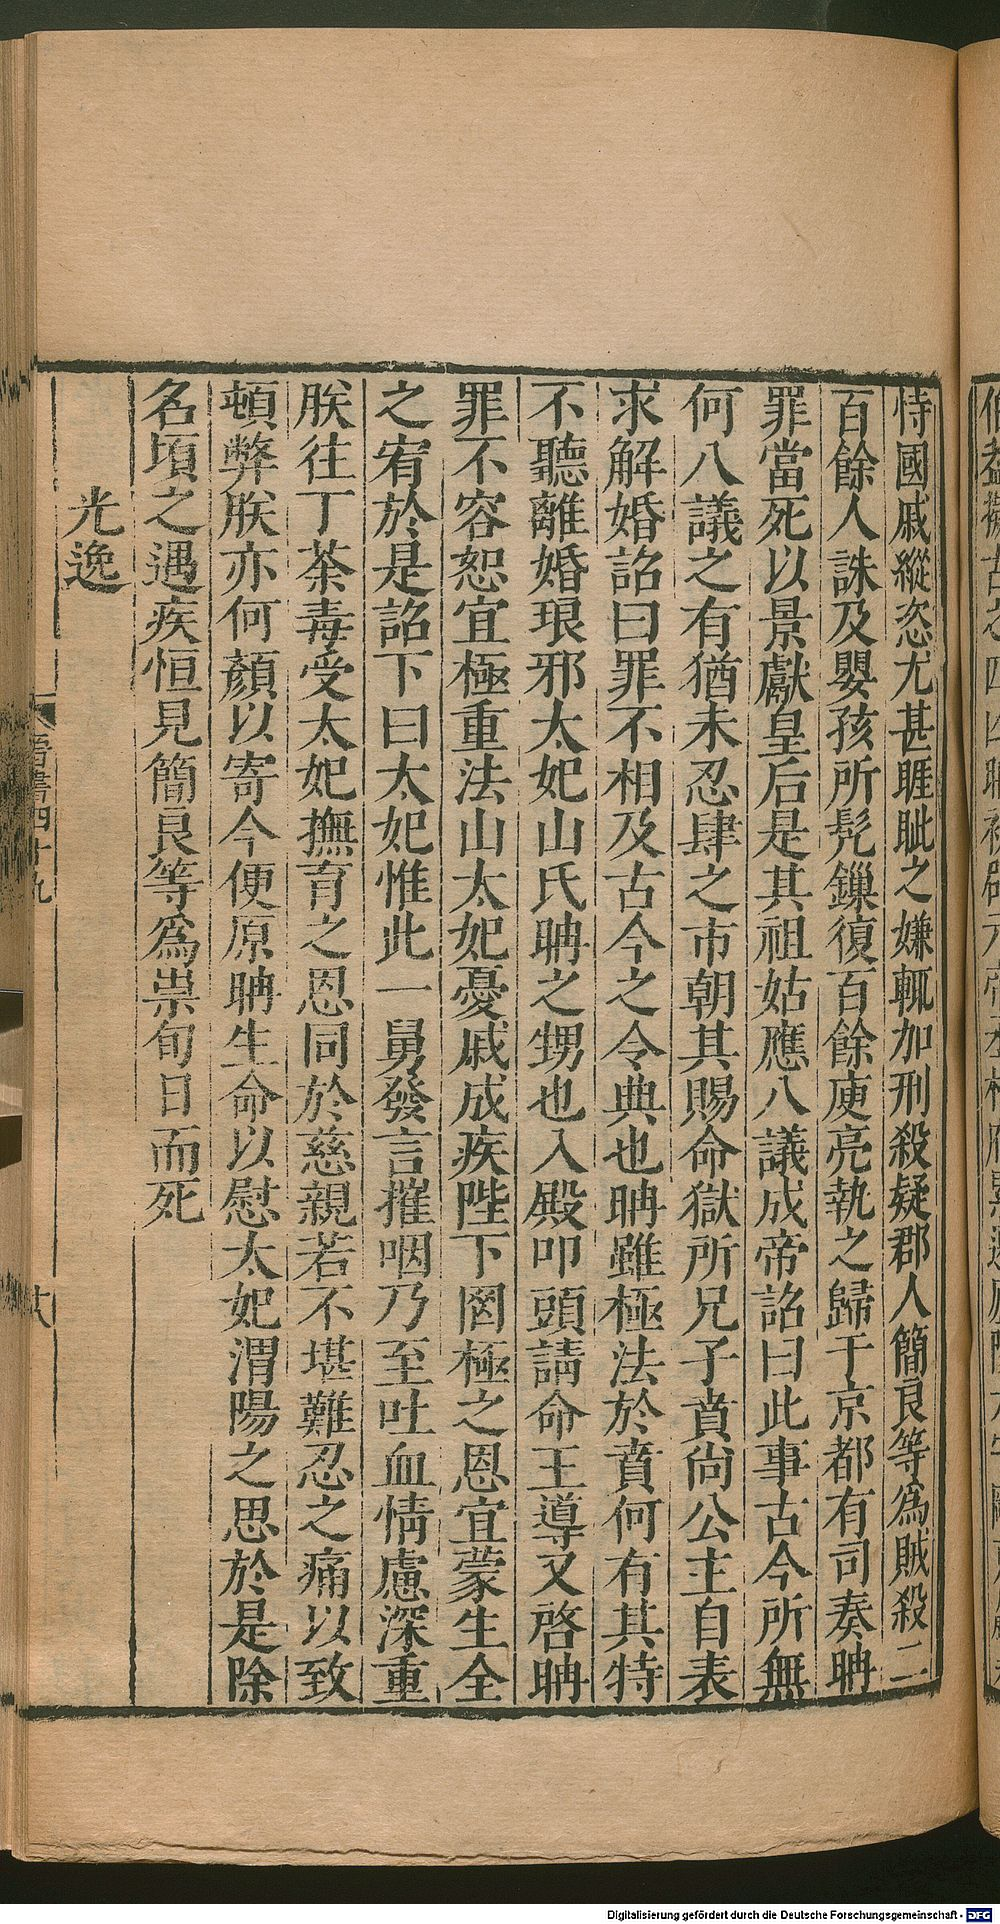 恃國戚縱恣尤甚睚眦之嫌輒加刑殺疑郡人簡良等爲賊殺二
百餘人誅及嬰孩所髡鏁復百餘庾亮執之歸于京都有司奏聃
罪當死以景獻皇后是其祖姑應八議成帝詔曰此事古今所無
何八議之有猶未忍肆之市朝其賜命獄所兄子賁尙公主自表
求解婚詔曰罪不相及古今之令典也聃雖極法於賁何有其特
不聽離婚琅邪太妃山氏聃之甥也入殿叩頭請命王導又啓聃
罪不容恕宜極重法山太妃憂戚成疾陛下罔極之恩宜蒙生全
之宥於是詔下曰太妃惟此一舅發言摧咽乃至吐血情慮深重
朕往丁荼毒受太妃撫育之恩同於慈親若不堪難忍之痛以致
頓弊朕亦何顏以寄今便原聃生命以慰太妃渭陽之思於是除
名頃之遇疾恒見簡良等爲祟旬日而死
光逸
晉書四十九
Digitalisierung gefördert durch die Deutsche Forschungsgemeinschaft - DFG